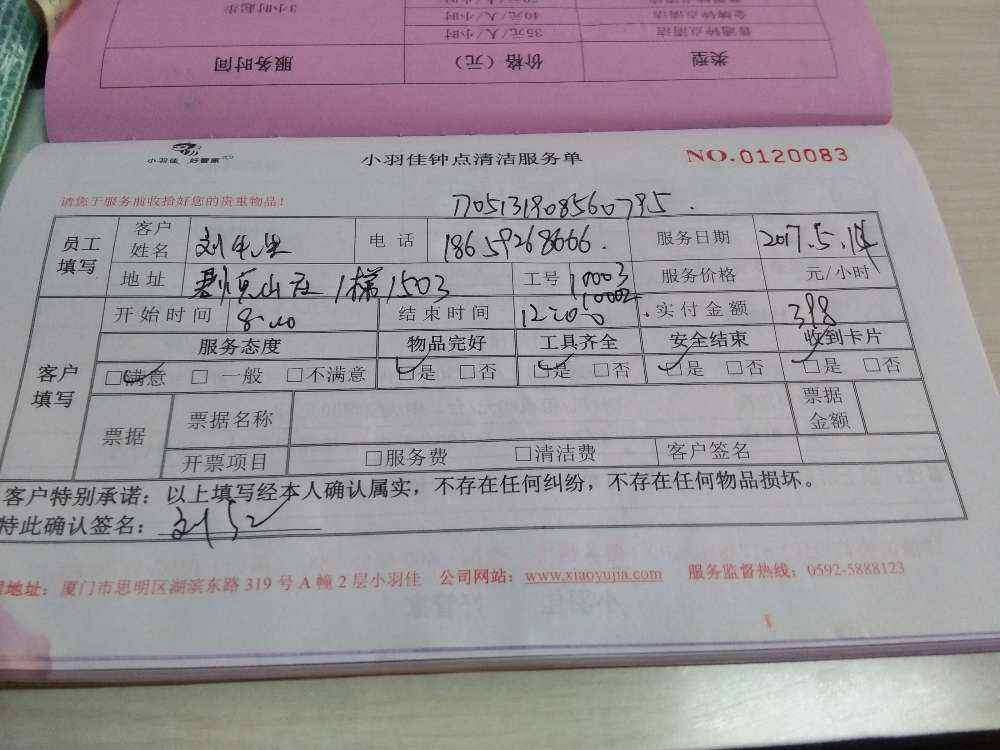 3小时起步
40元/人/小时
金牌钟点清洁
35元/人/小时
普通钟点清洁
服务时间
价格（元）
类型
小羽佳 好管家
小羽佳钟点清洁服务单
NO.0120083
请您于服务前收拾好您的贵重物品！
员工填写
客户姓名
电话
18659268666.
服务日期
2017.5.14
地址
1梯1503
工号
10003
10002
服务价格
元/小时
客户填写
开始时间
8:00
结束时间
12:00
实付金额
398
服务态度
物品完好
工具齐全
安全结束
收到卡片
□满意 □一般 □不满意
□是 □否
□是 □否
□是 □否
□是 □否
票据
票据名称
票据金额
开票项目
□服务费
□清洁费
客户签名
客户特别承诺：以上填写经本人确认属实，不存在任何纠纷，不存在任何物品损坏。
特此确认签名：
地址：厦门市思明区湖滨东路 319 号 A 幢 2 层小羽佳 公司网站：www.xiaoyujia.com 服务监督热线：0592-5888123